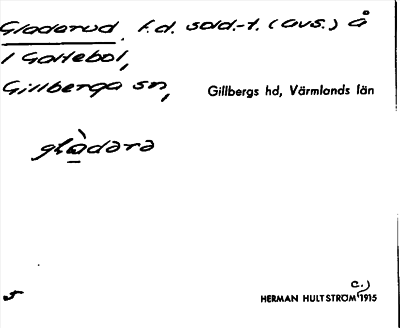 Gladerud. f.d. sold.-t. (avs.) å
1 Gottebol,
Gillberga sn,
Gillbergs hd, Värmlands län
glàdərə
5
c.)
HERMAN HULTSTRÖM 1915